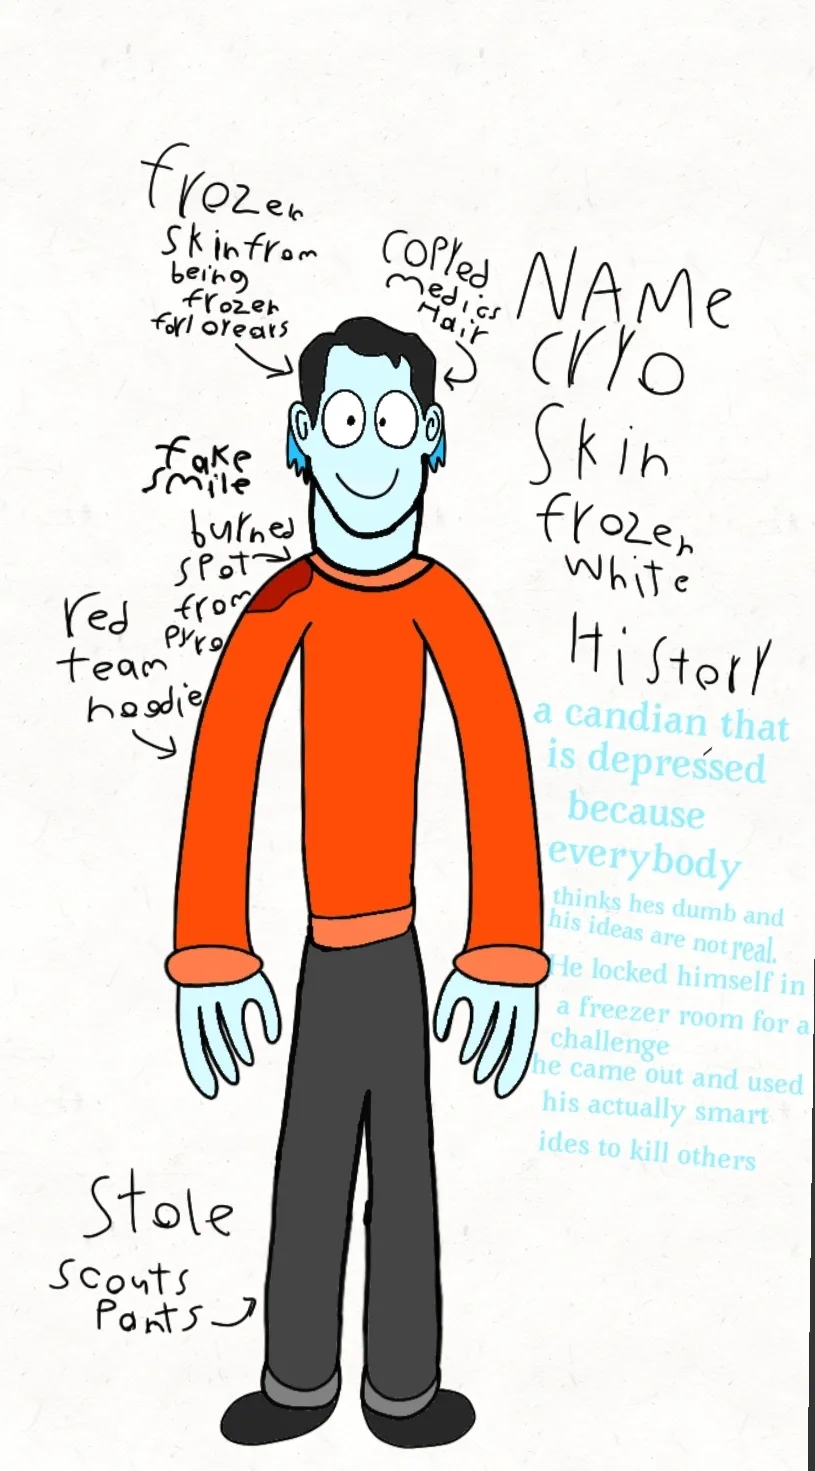 frozen
skin from
being
frozen
for 10 years
copied
medics
Hair
fake
smile
burned
spot
from
pyro
red
team
hoodie
stole
scouts
pants
NAMe
cryo
skin
frozen
white
History
a candian that
is depressed
because
everybody
thinks hes dumb and
his ideas are not real.
He locked himself in
a freezer room for a
challenge
he came out and used
his actually smart
ides to kill others